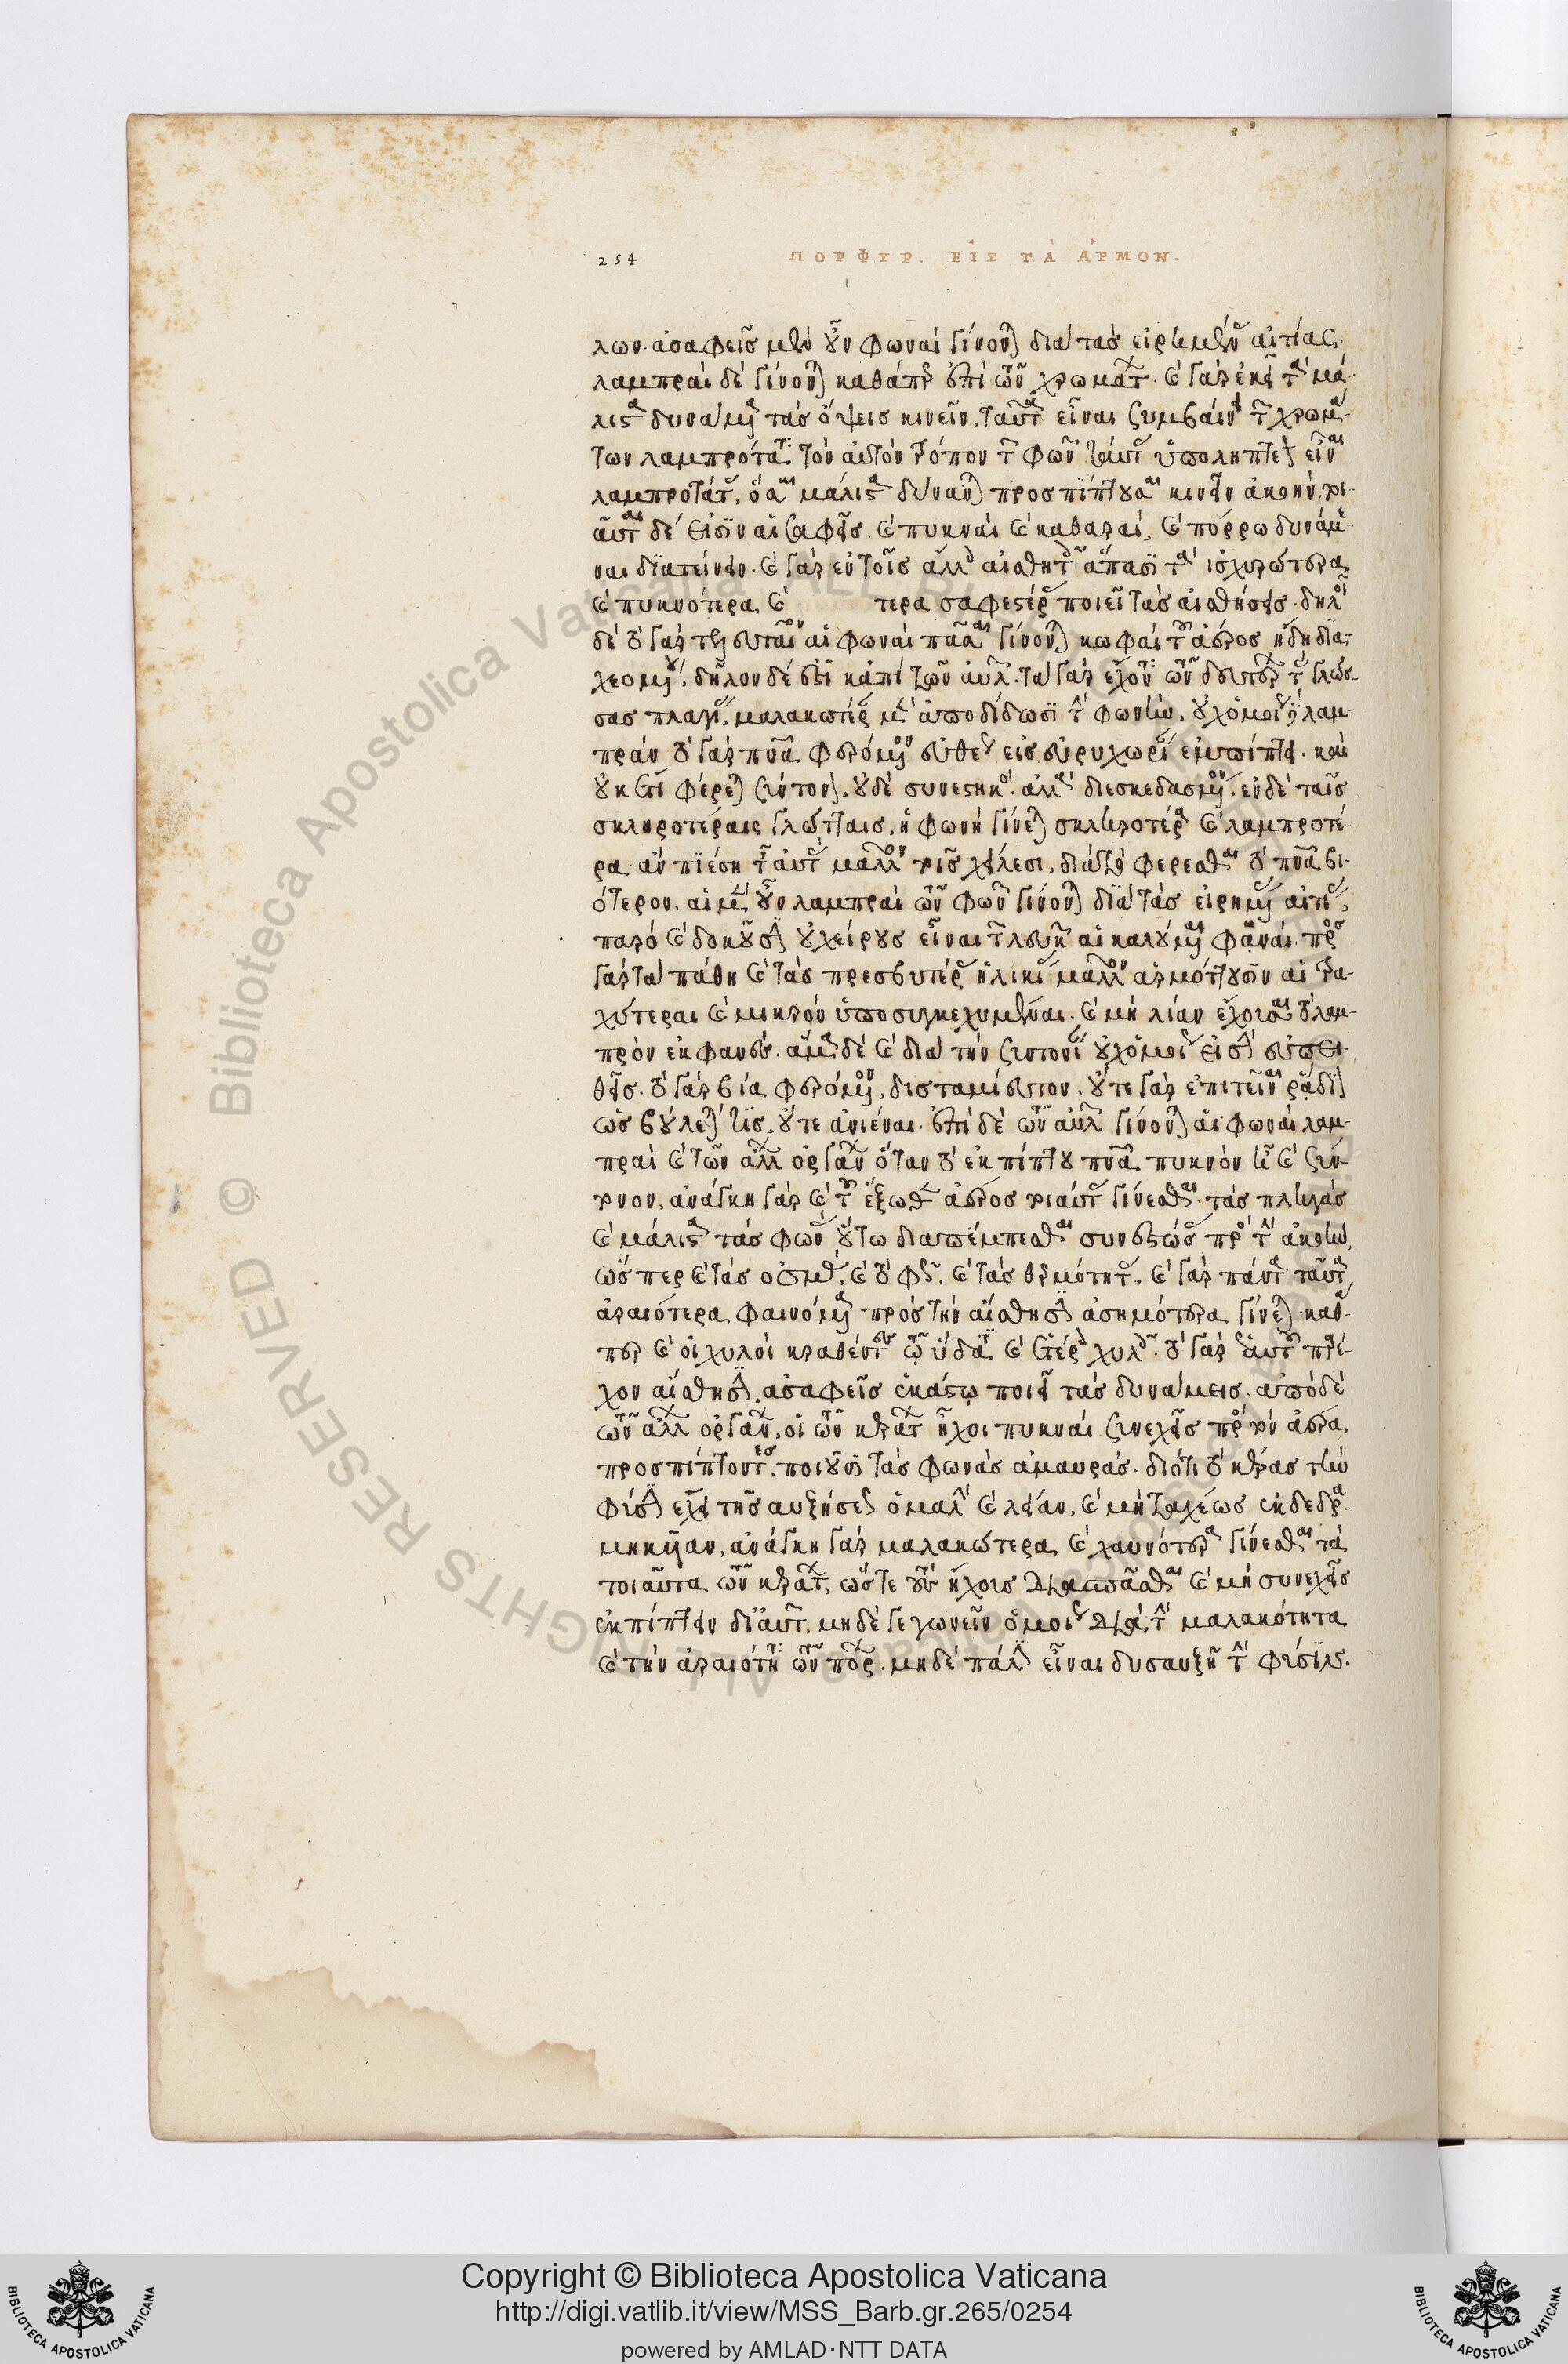 254 ΠΟΡΦΥΡ. ΕἸΣ ΤᾺ ἉΡΜΟΝ.
λων. ἀσαφεῖς μὲν οὖν φωναὶ γίνονται διὰ τὰς εἰρημένας αἰτίας.
λαμπραὶ δὲ γίνονται καθάπερ ἐπὶ τῶν χρωμάτων. καὶ γὰρ ἐκεῖ τὰ μά-
λιστα δυνάμενα τὰς ὄψεις κινεῖν, ταῦτα εἶναι συμβαίνει τῶν χρωμά-
των λαμπρότατα. τὸν αὐτὸν τρόπον τῶν φωνῶν ταύτας ὑποληπτέον εἶναι
λαμπροτάτας, ὅσαι μάλιστα δύνανται προσπίπτουσαι κινεῖν ἀκοήν. τοι-
αῦται δέ εἰσιν αἱ σαφεῖς καὶ πυκναὶ καὶ καθαραί, καὶ πόρρω δυνάμε-
ναι διατείνειν. καὶ γὰρ ἐν τοῖς ἄλλοις αἰσθητοῖς ἅπασι τὰ ἰσχυρότερα
καὶ πυκνότερα καὶ τερα σαφεστέρας ποιεῖ τὰς αἰσθήσεις. δῆλον
δὲ
χεομένου. δῆλον δέ ἐστι κἀπὶ τῶν αὐλῶν. τὰ γὰρ ἔχοντα τῶν ζευγῶν τὰς γλώσ-
σας πλαγίας, μαλακωτέραν μὲν ἀποδίδωσι τὴν φωνὴν, οὐχ ὁμοίως δὲ λαμ-
πράν. τὸ γὰρ πνεῦμα φερόμενον εὐθέως εἰς εὐρυχωρίαν ἐμπίπτει. καὶ
οὐκέτι φέρεται σύντονον, οὐδὲ συνεστηκός. ἀλλὰ διεσκεδασμένον. ἐν δὲ ταῖς
σκληροτέραις γλώτταις, ἡ φωνὴ γίνεται σκληροτέρα καὶ λαμπροτέ-
ρα. ἂν πιέσῃ τις αὐτὰς μᾶλλον τοῖς χείλεσι, διὰ τὸ φέρεσθαι τὸ πνεῦμα βι-
ότερον. αἱ μὲν οὖν λαμπραὶ τῶν φωνῶν γίνονται διὰ τὰς εἰρημένας αἰτίας.
παρὸ καὶ δοκοῦσιν οὐ χείρους εἶναι τῶν λευκῶν αἱ καλούμεναι φαιαί. πρὸς
γὰρ τὰ πάθη καὶ τὰς πρεσβυτέρας ἡλικίας μᾶλλον ἁρμόττουσιν αἱ τρα-
χύτεραι καὶ μικρὸν ὑποσυγκεχυμέναι. καὶ μὴ λίαν ἔχουσαι τὸ λαμ-
πρὸν ἐκφανές. ἅμα δὲ καὶ διὰ τὴν συντονίαν οὐχ ὁμοίως εἰσὶν εὐπει-
θεῖς. τὸ γὰρ βίᾳ φερόμενον, δυσταμίευτον. οὔτε γὰρ ἐπιτεῖναι ῥᾴδιον
ὡς βούλεταί τις, οὔτε ἀνιέναι. ἐπὶ δὲ τῶν αὐλῶν γίνονται αἱ φωναὶ λαμ-
πραὶ καὶ τῶν ἄλλων ὀργάνων ὅταν τὸ ἐκπίπτον πνεῦμα πυκνὸν ᾖ καὶ σύν-
τονον. ἀνάγκη γὰρ καὶ τοῦ ἔξωθεν ἀέρος τοιαύτας γίνεσθαι τὰς πληγὰς
καὶ μάλιστα τὰς φωνὰς οὕτω διαπέμπεσθαι συνεστώσας πρὸς τὴν ἀκοήν,
ὥσπερ καὶ τὰς ὀσμὰς, καὶ τὸ φῶς. καὶ τὰς θερμότητας. καὶ γὰρ πάντα ταῦτα
ἀραιότερα φαινόμενα πρὸς τὴν αἴσθησιν ἀσημότερα γίνεται. καθά-
περ καὶ οἱ χυλοὶ κραθέντες τῷ ὕδατι καὶ ἑτέροις χυλοῖς. τὸ γὰρ ἑαυτοῦ παρέ-
χον αἴσθησιν, ἀσαφεῖς ἑκάστῳ ποιεῖ τὰς δυνάμεις. ἀπὸ δὲ
τῶν ἄλλων ὀργάνων, οἱ τῶν κεράτων ἦχοι πυκναὶ συνεχεῖς πρὸς τὸν ἀέρα
προσπίπτοντες, ποιοῦσι τὰς φωνὰς ἀμαυράς. διὸ τὸ κέρας τὴν
φύσιν ἔχει τῆς αὐξήσεως ὁμαλὴν καὶ λείαν, καὶ μὴ ταχέως ἐκδεδρα-
μηκυῖαν. ἀνάγκη γὰρ μαλακώτερα καὶ χαυνότερα γίνεσθαι τὰ
τοιαῦτα τῶν κεράτων, ὥστε τοὺς ἤχους διασπᾶσθαι καὶ μὴ συνεχεῖς
ἐκπίπτειν δι' αὐτῶν, μηδὲ γεγωνεῖν ὁμοίως διὰ τὴν μαλακότητα
καὶ τὴν ἀραιότητα τῶν πόρων. μηδὲ πάλιν εἶναι δυσαυξῆ τὴν φύσιν.
Copyright © Biblioteca Apostolica Vaticana
http://digi.vatlib.it/view/MSS_Barb.gr.265/0254
powered by AMLAD·NTT DATA